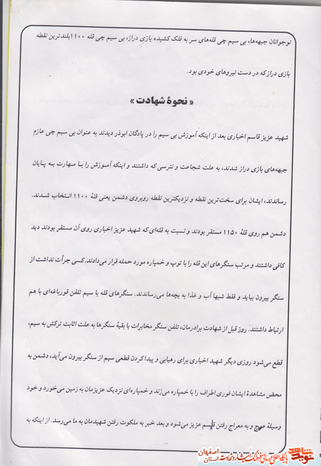 نوجوانان جبهه‌ها، بی سیم چی قله‌های سر به فلک کشیده بازی دراز، بی سیم چی قله ۱۱۰۰ بلندترین نقطه
بازی دراز که در دست نیروهای خودی بود.
« نحوهٔ شهادت »
شهید عزیز قاسم اخباری بعد از اینکه آموزش بی سیم را در پادگان ابوذر دیدند به عنوان بی سیم چی عازم
جبهه‌های بازی دراز شدند، به علت شجاعت و نترسی که داشتند و اینکه آموزش را با مهارت به پایان
رساندند، ایشان برای سخت‌ترین نقطه و نزدیکترین نقطه روبروی دشمن یعنی قلهٔ ۱۱۰۰ انتخاب شدند.
دشمن هم روی قلهٔ ۱۱۵۰ مستقر بودند و نسبت به قله‌ای که شهید عزیز اخباری روی آن مستقر بودند دید
کافی داشتند و مرتب سنگرهای این قله را با توپ و خمپاره مورد حمله قرار می‌دادند. کسی جرأت نداشت از
سنگر بیرون بیاید و فقط شبها آب و غذا به بچه‌ها می‌رساندند. سنگرهای قله با سیم تلفن قورباغه‌ای با هم
ارتباط داشتند. روز قبل از شهادت برادرمان، تلفن سنگر مخابرات با بقیهٔ سنگرها به علت اثابت ترکش به سیم،
قطع می‌شود روزی دیگر شهید اخباری برای رهیابی و پیدا کردن قطعی سیم از سنگر بیرون می‌آید، دشمن به
محض مشاهدهٔ ایشان فوری اطراف را با خمپاره می‌زند و خمپاره‌ای نزدیک عزیزمان به زمین می‌خورد و خود
وسیلهٔ عروج و به معراج رفتن قاسم عزیز می‌شود و بعد خبر به ملکوت رفتن شهیدمان به ما می‌رسد. از اینکه به
اصفهان
نوید شاهد